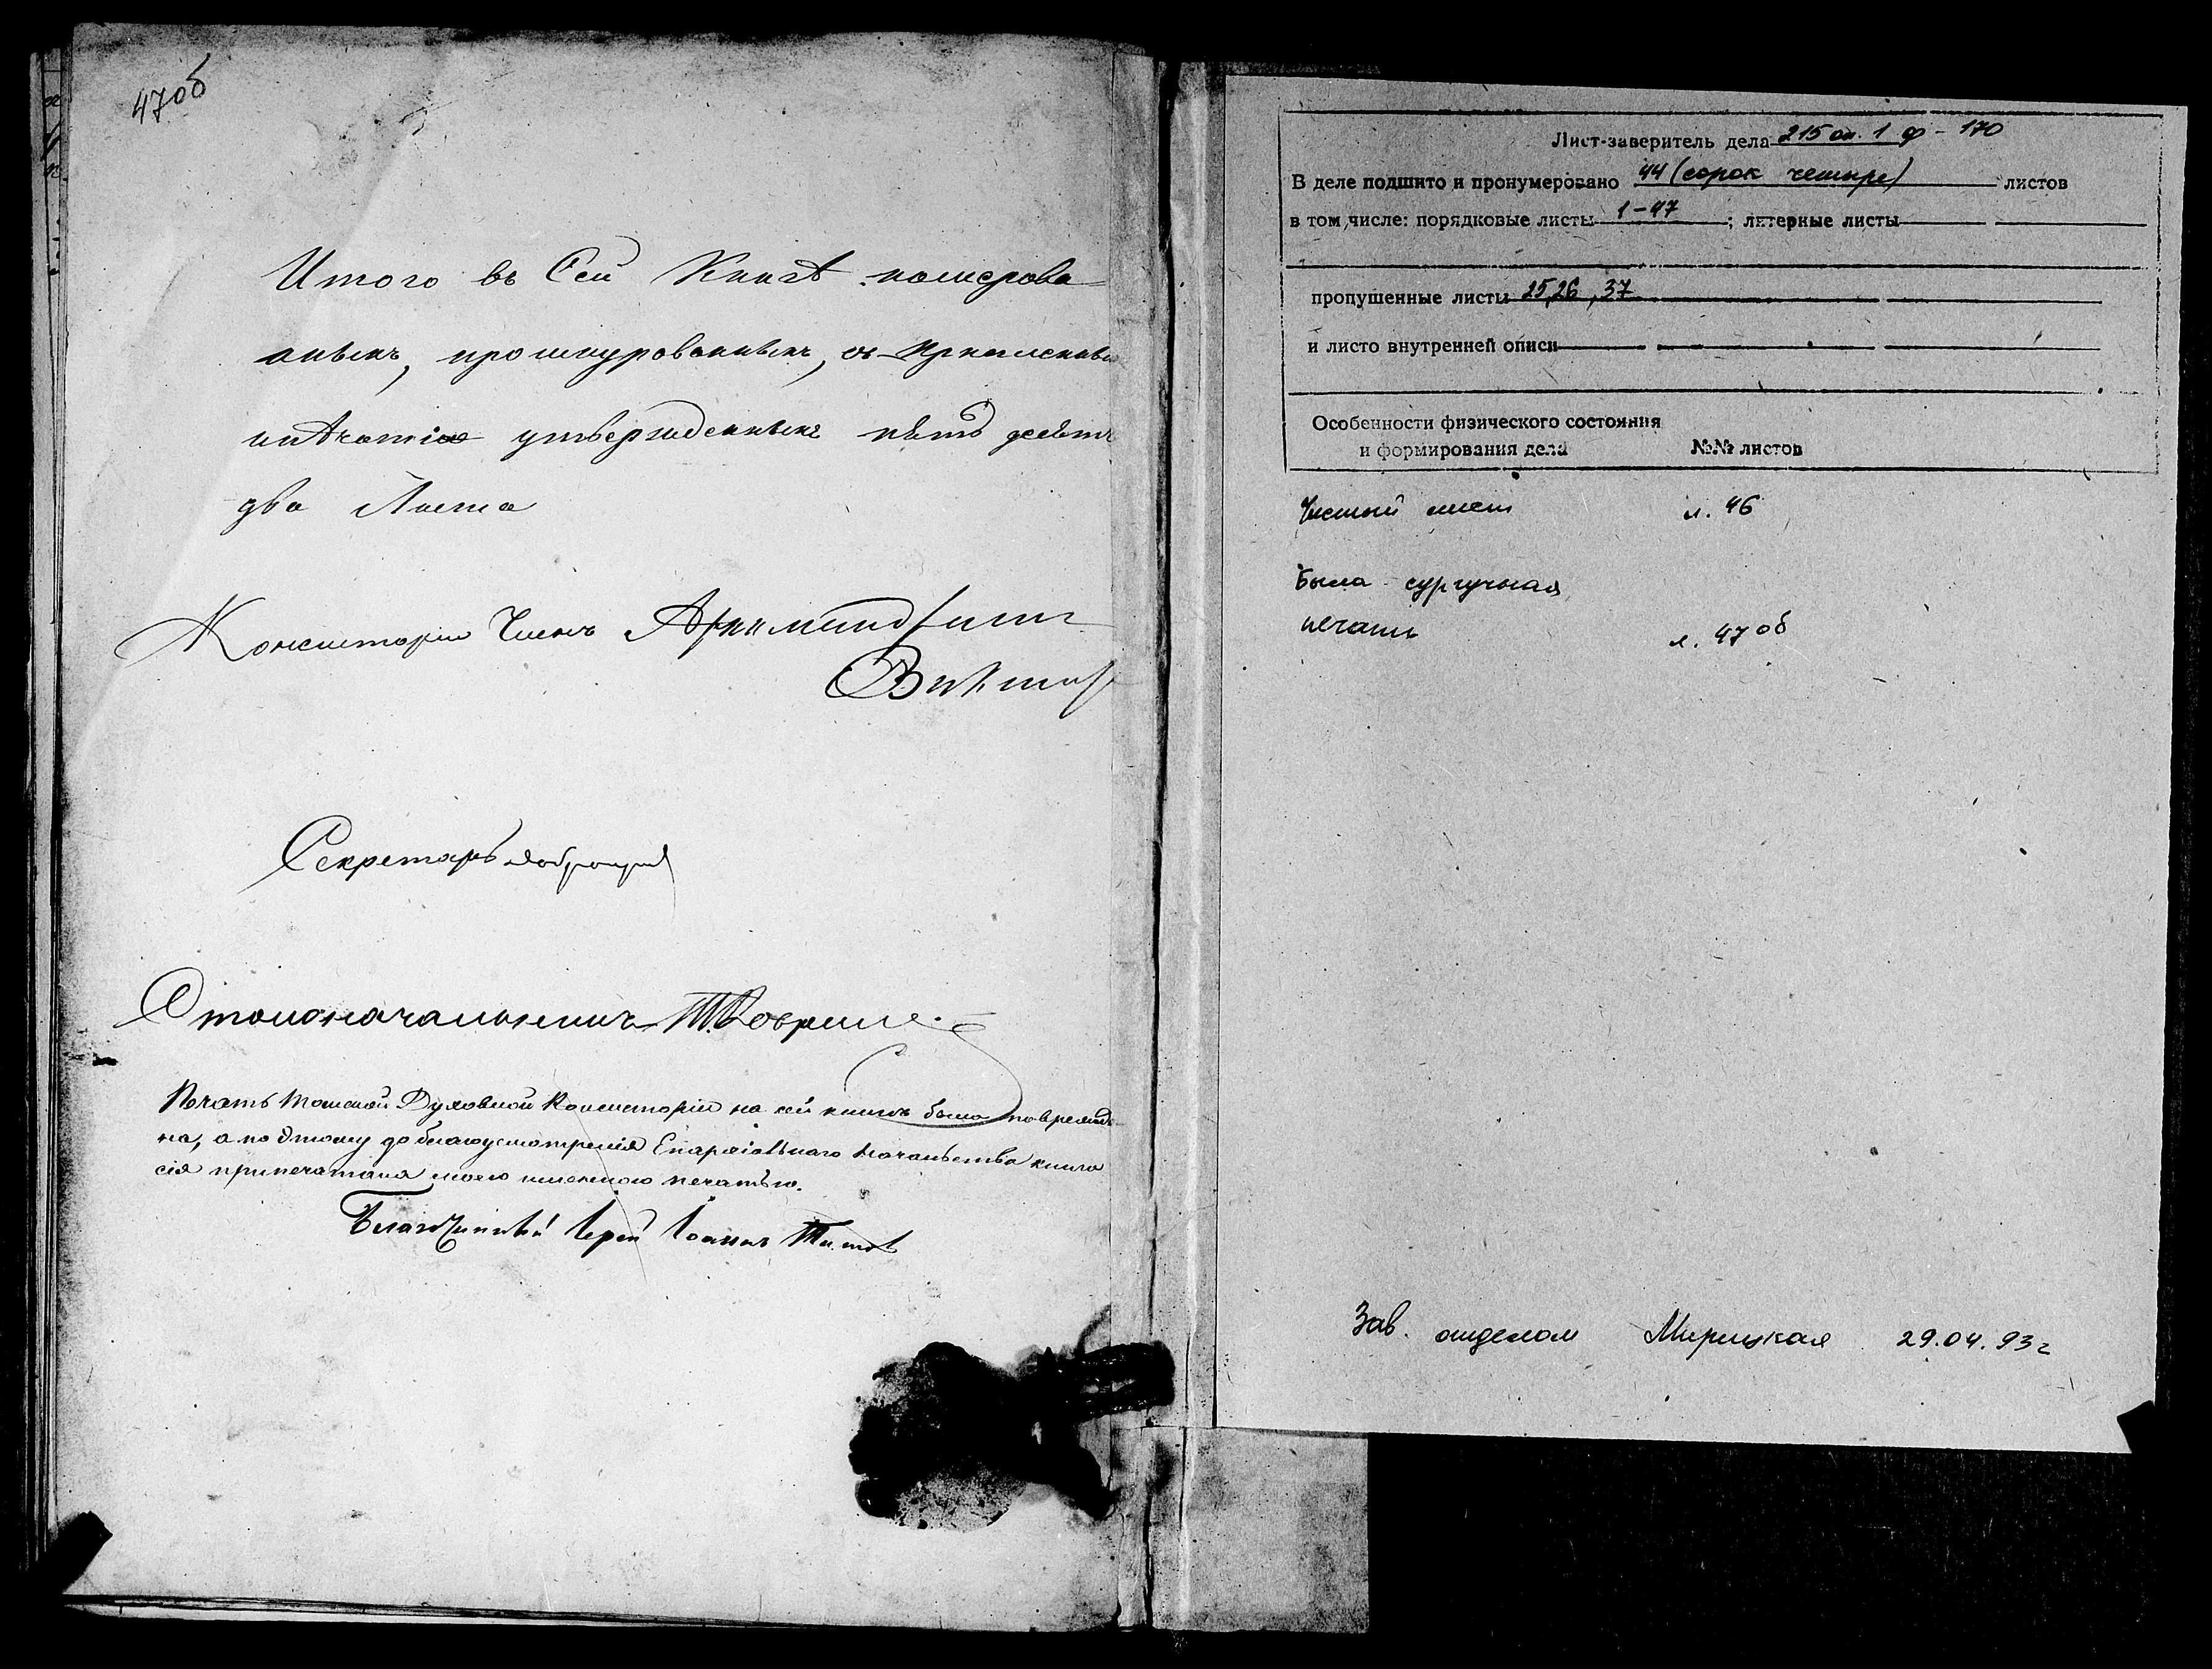 47 об
Итого въ Сей Книгѣ номерова-
нныхъ, прошнурованныхъ, съ
утвержденныхъ пять десятъ
два Листа
Консисторіи Членъ Архимандритъ
Викторъ
Секретарь
Столоначальникъ
Печать Томской Духовной Консисторіи на сей книгѣ была поврежде-
на, а по этому до благоусмотренія Епархіальнаго Начальства книга
сія припечатана моею именною печатью.
Благочинный Іерей Іоаннъ Титовъ
Лист-заверитель дела 215 оп. 1 ф - 170
В деле подшито и пронумеровано 44 (сорок четыре) листов
в том числе: порядковые листы 1-47; литерные листы
пропушенные листы 25,26,37
и листо внутренней описи
Особенности физического состояния
и формирования дела №№ листов
Чистый лист л. 46
Была сургучная
печать л. 47 об
Зав. отделом Мирицкая 29.04.93г